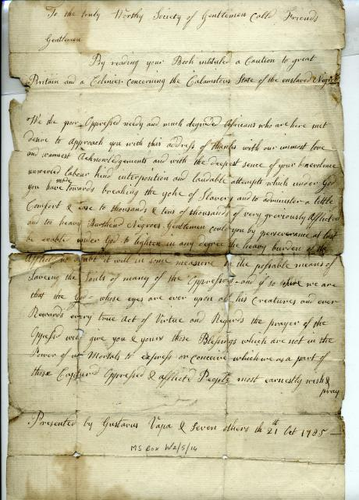 To the Truly Worthy Society of Gentlemen Calld Friends
Gentlemen
By reading your Book intitulate a Caution to great
Britain and a Colonies concerning the Calamitous State of the enslaved Negroes
We the poor Oppressed needy and much degraded Africans who are here met
desire to approach you with this address of thanks with our inmost love
and warmest Acknowledgements and with the deepest sense of your benevolence
unwearied labour kind interposition and laudable attempts which under God
you have made towards breaking the yoke of Slavery and to administer a little
Comfort & ease to thousands & tens of thousands of very grievously Afflicted
and too heavy Burthend Negroes Gentlemen could you by perseverance at last
be enabled under God to lighten in any degree the heavy burden of the
Afflicted no doubt it will in some measure be the possible means of
Saveing the Souls of many of the Oppressors and if so we are
that the God whose eyes are ever upon all his Creatures and ever
Rewards every true Act of Virtue and Regards the prayer of the
Oppresed will give you & yours those Blessings which are not in the
Power of us Mortals to express or conceive which we as a part of
those Captured Oppressed & afflicted People most earnestly wish &
pray
Presented by Gustavus Vasa & Seven others the 21st Oct 1785
MS Box W2/5/16